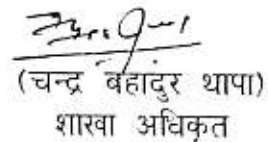 (चन्द्र बहादुर थापा)
शाखा अधिकृत